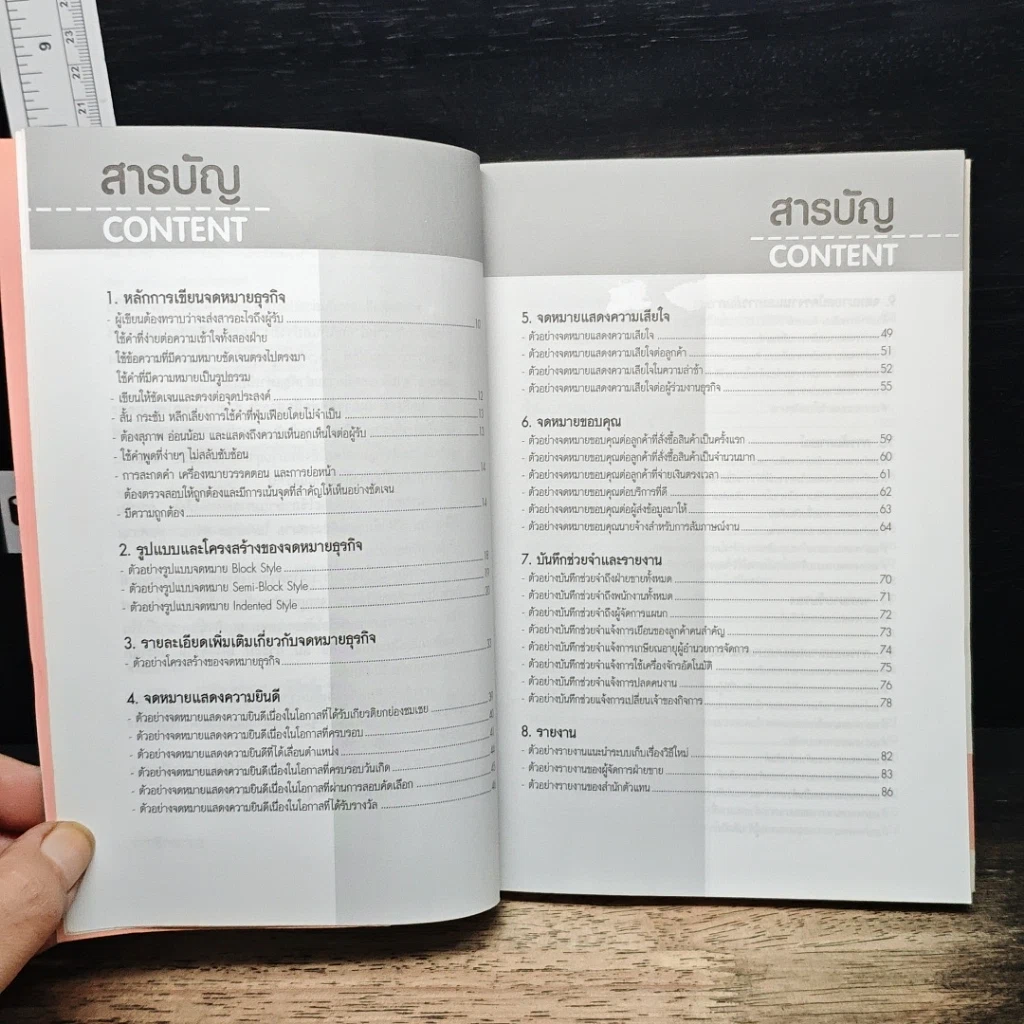 สารบัญ
CONTENT
1. หลักการเขียนจดหมายธุรกิจ
- ผู้เขียนต้องทราบว่าจะส่งสารอะไรถึงผู้รับ 10
ใช้คำที่ง่ายต่อความเข้าใจทั้งสองฝ่าย
ใช้ข้อความที่มีความหมายชัดเจนตรงไปตรงมา
ใช้คำที่มีความหมายเป็นรูปธรรม
- เขียนให้ชัดเจนและตรงต่อจุดประสงค์ 12
- สั้น กระชับ หลีกเลี่ยงการใช้คำที่ฟุ่มเฟือยโดยไม่จำเป็น 13
- ต้องสุภาพ อ่อนน้อม และแสดงถึงความเห็นอกเห็นใจต่อผู้รับ 13
- ใช้คำพูดที่ง่ายๆ ไม่สลับซับซ้อน
- การสะกดคำ เครื่องหมายวรรคตอน และการย่อหน้า 14
ต้องตรวจสอบให้ถูกต้องและมีการเน้นจุดที่สำคัญให้เห็นอย่างชัดเจน
- มีความถูกต้อง 14
2. รูปแบบและโครงสร้างของจดหมายธุรกิจ
- ตัวอย่างรูปแบบจดหมาย Block Style 18
- ตัวอย่างรูปแบบจดหมาย Semi-Block Style 19
- ตัวอย่างรูปแบบจดหมาย Indented Style 20
3. รายละเอียดเพิ่มเติมเกี่ยวกับจดหมายธุรกิจ
- ตัวอย่างโครงสร้างของจดหมายธุรกิจ
4. จดหมายแสดงความยินดี
- ตัวอย่างจดหมายแสดงความยินดีเนื่องในโอกาสที่ได้รับเกียรติยกย่องชมเชย 39
- ตัวอย่างจดหมายแสดงความยินดีเนื่องในโอกาสที่ครบรอบ
- ตัวอย่างจดหมายแสดงความยินดีที่ได้เลื่อนตำแหน่ง
- ตัวอย่างจดหมายแสดงความยินดีเนื่องในโอกาสที่ครบรอบวันเกิด
- ตัวอย่างจดหมายแสดงความยินดีเนื่องในโอกาสที่ผ่านการสอบคัดเลือก
- ตัวอย่างจดหมายแสดงความยินดีเนื่องในโอกาสที่ได้รับรางวัล
สารบัญ
CONTENT
5. จดหมายแสดงความเสียใจ
- ตัวอย่างจดหมายแสดงความเสียใจ 49
- ตัวอย่างจดหมายแสดงความเสียใจต่อลูกค้า 51
- ตัวอย่างจดหมายแสดงความเสียใจในความล่าช้า 52
- ตัวอย่างจดหมายแสดงความเสียใจต่อผู้ร่วมงานธุรกิจ 55
6. จดหมายขอบคุณ
- ตัวอย่างจดหมายขอบคุณต่อลูกค้าที่สั่งซื้อสินค้าเป็นครั้งแรก 59
- ตัวอย่างจดหมายขอบคุณต่อลูกค้าที่สั่งซื้อสินค้าเป็นจำนวนมาก 60
- ตัวอย่างจดหมายขอบคุณต่อลูกค้าที่จ่ายเงินตรงเวลา 61
- ตัวอย่างจดหมายขอบคุณต่อบริการที่ดี 62
- ตัวอย่างจดหมายขอบคุณต่อผู้ส่งข้อมูลมาให้ 63
- ตัวอย่างจดหมายขอบคุณนายจ้างสำหรับการสัมภาษณ์งาน 64
7. บันทึกช่วยจำและรายงาน
- ตัวอย่างบันทึกช่วยจำถึงฝ่ายขายทั้งหมด 70
- ตัวอย่างบันทึกช่วยจำถึงพนักงานทั้งหมด 71
- ตัวอย่างบันทึกช่วยจำถึงผู้จัดการแผนก 72
- ตัวอย่างบันทึกช่วยจำแจ้งการเยือนของลูกค้าคนสำคัญ 73
- ตัวอย่างบันทึกช่วยจำแจ้งการเกษียณอายุผู้อำนวยการจัดการ 74
- ตัวอย่างบันทึกช่วยจำแจ้งการใช้เครื่องจักรอัตโนมัติ 75
- ตัวอย่างบันทึกช่วยจำแจ้งการปลดคนงาน 76
- ตัวอย่างบันทึกช่วยแจ้งการเปลี่ยนเจ้าของกิจการ 78
8. รายงาน
- ตัวอย่างรายงานแนะนำระบบเก็บเรื่องวิธีใหม่ 82
- ตัวอย่างรายงานของผู้จัดการฝ่ายขาย 83
- ตัวอย่างรายงานของสำนักตัวแทน 86